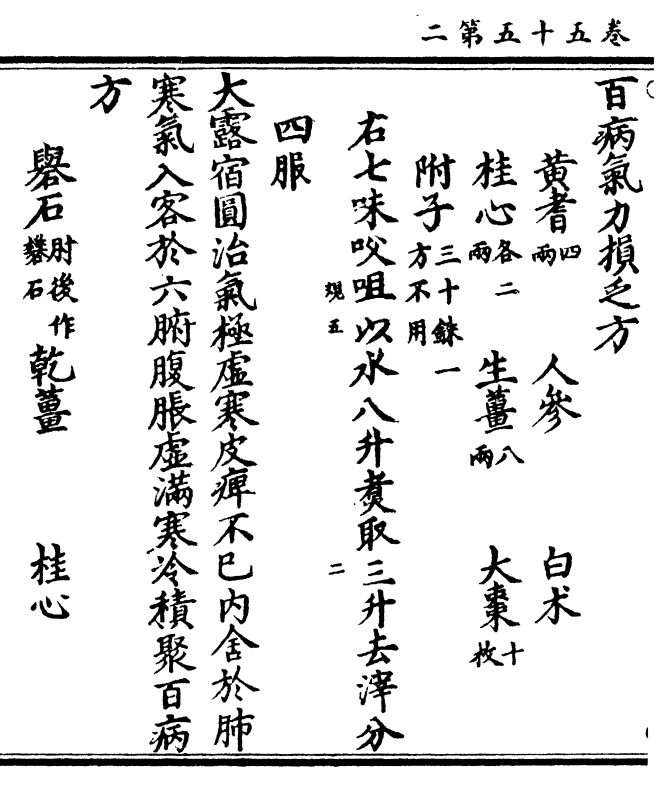 卷五十五第二
百病氣力損乏方
黃耆四兩 人參 白术
桂心各二兩 生薑八兩 大棗十枚
附子三十銖一方不用
右七味㕮咀以水八升煑取三升去滓分
現五 二
四服
大露宿圓治氣極虛寒皮痺不已內舍於肺
寒氣入客於六腑腹脹虛滿寒冷積聚百病
方
礜石肘後作礬石 乾薑 桂心